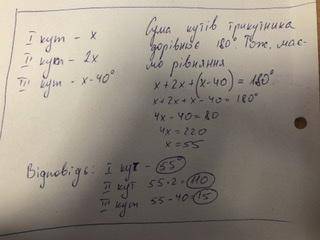 I кут - x
II кут - 2x
III кут - x-40°
Сума кутів трикутника
дорівнює 180° Тож, має-
мо рівняння
x+2x+(x-40)=180°
x+2x+x-40=180°
4x-40=80
4x=220
x=55
Відповідь: I кут - 55°
II кут 55·2=110
III кут 55-40=15